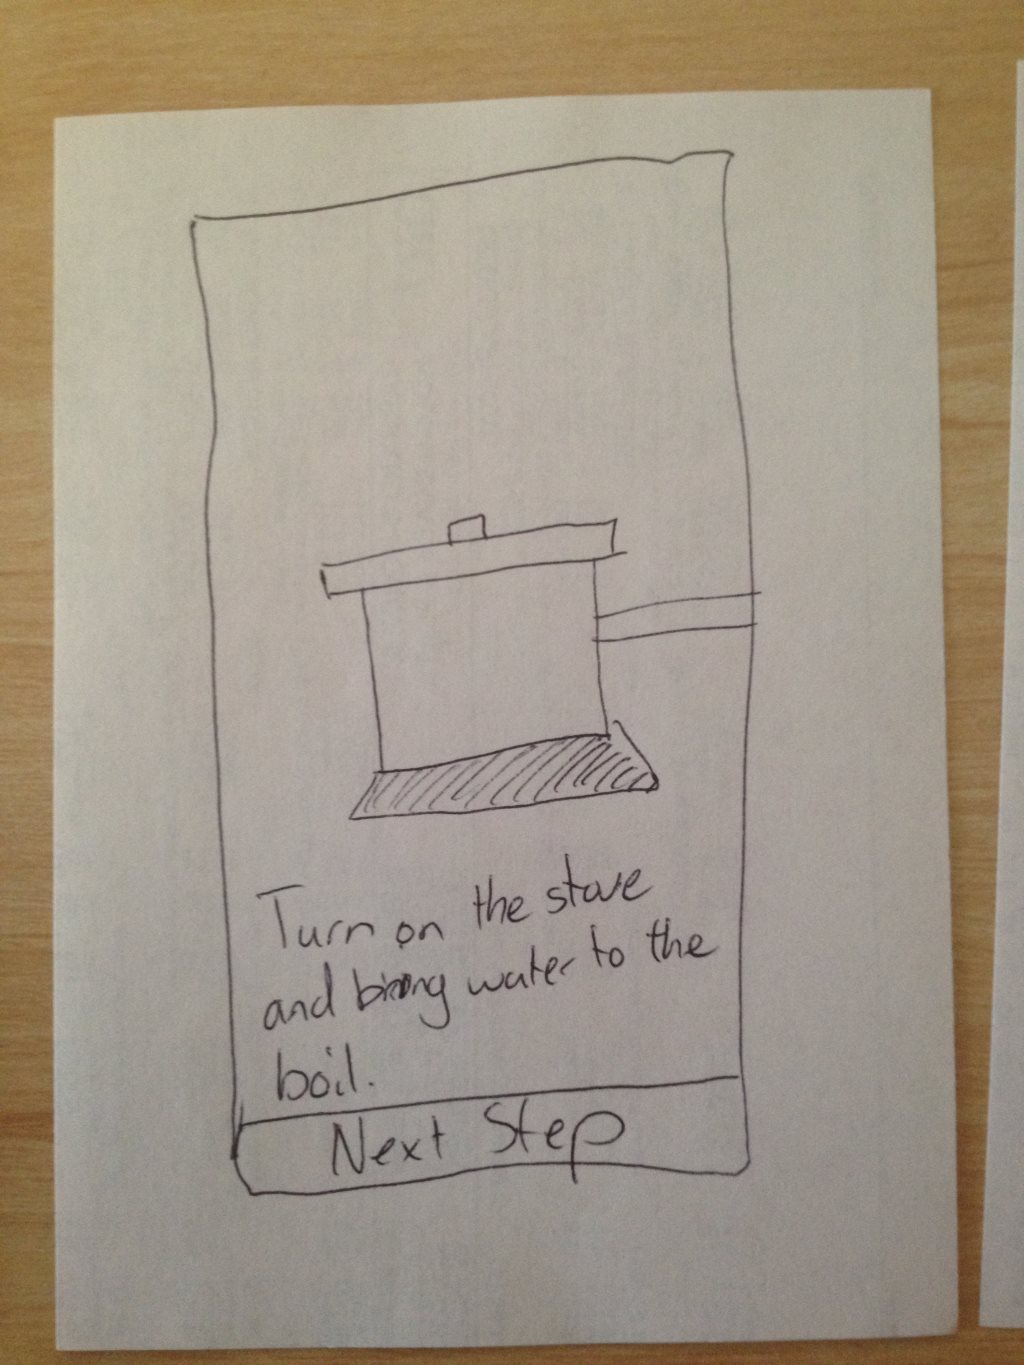 Turn on the stove
and bring water to the
boil.
Next Step